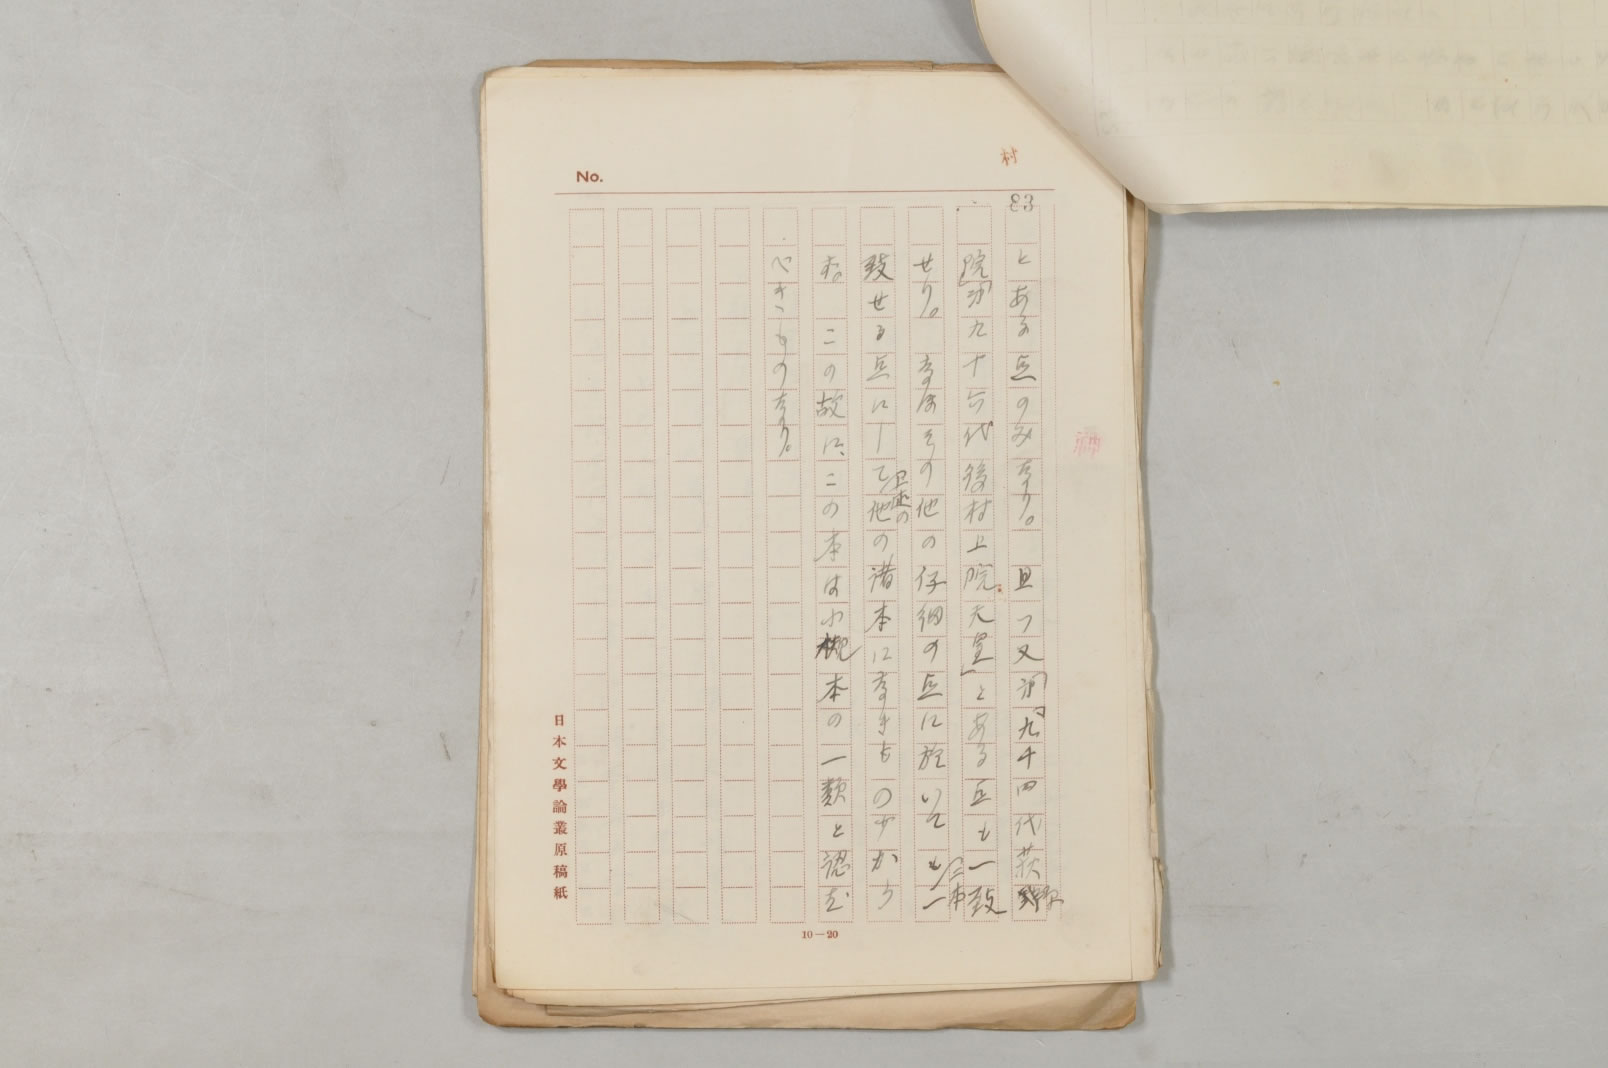 No.
村
83
とある点のみなり。且つ又、第九十四代萩野
院、第九十六代後村上院天皇」とある点も一致
せり。なほその他の仔細の点に於いても二本一
致せる点にして他の諸本になきもの少から
ず。この故に、この本は小槻本の一類と認む
べきものなり。
日本文學論叢原稿紙
10—20